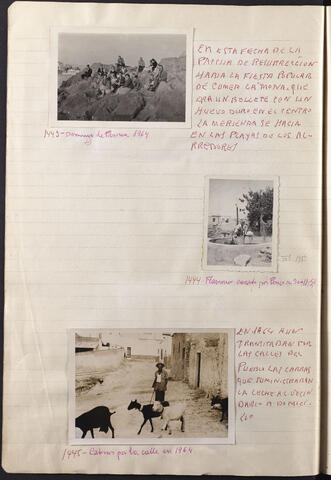 EN ESTA FECHA DE LA
PASCUA DE RESURRECCIÓN
HABIA LA FIESTA POPULAR
DE COMER LA MONA, QUE
ERA UN ROLLETE CON UN
HUEVO DURO EN EL CENTRO
LA MERIENDA SE HACIA
EN LAS PLAYAS DE LOS AL-
REREDORES
1443 - Domingo de Pascua 1964
1444
EN 1964 AUN
TRANSITABAN POR
LAS CALLES DEL
PUEBLO LAS CABRAS
QUE SUMINISTRABAN
LA LECHE AL VECIN
DARIO A DOMICI-
LIO
1445 - Cabras por la calle en 1964